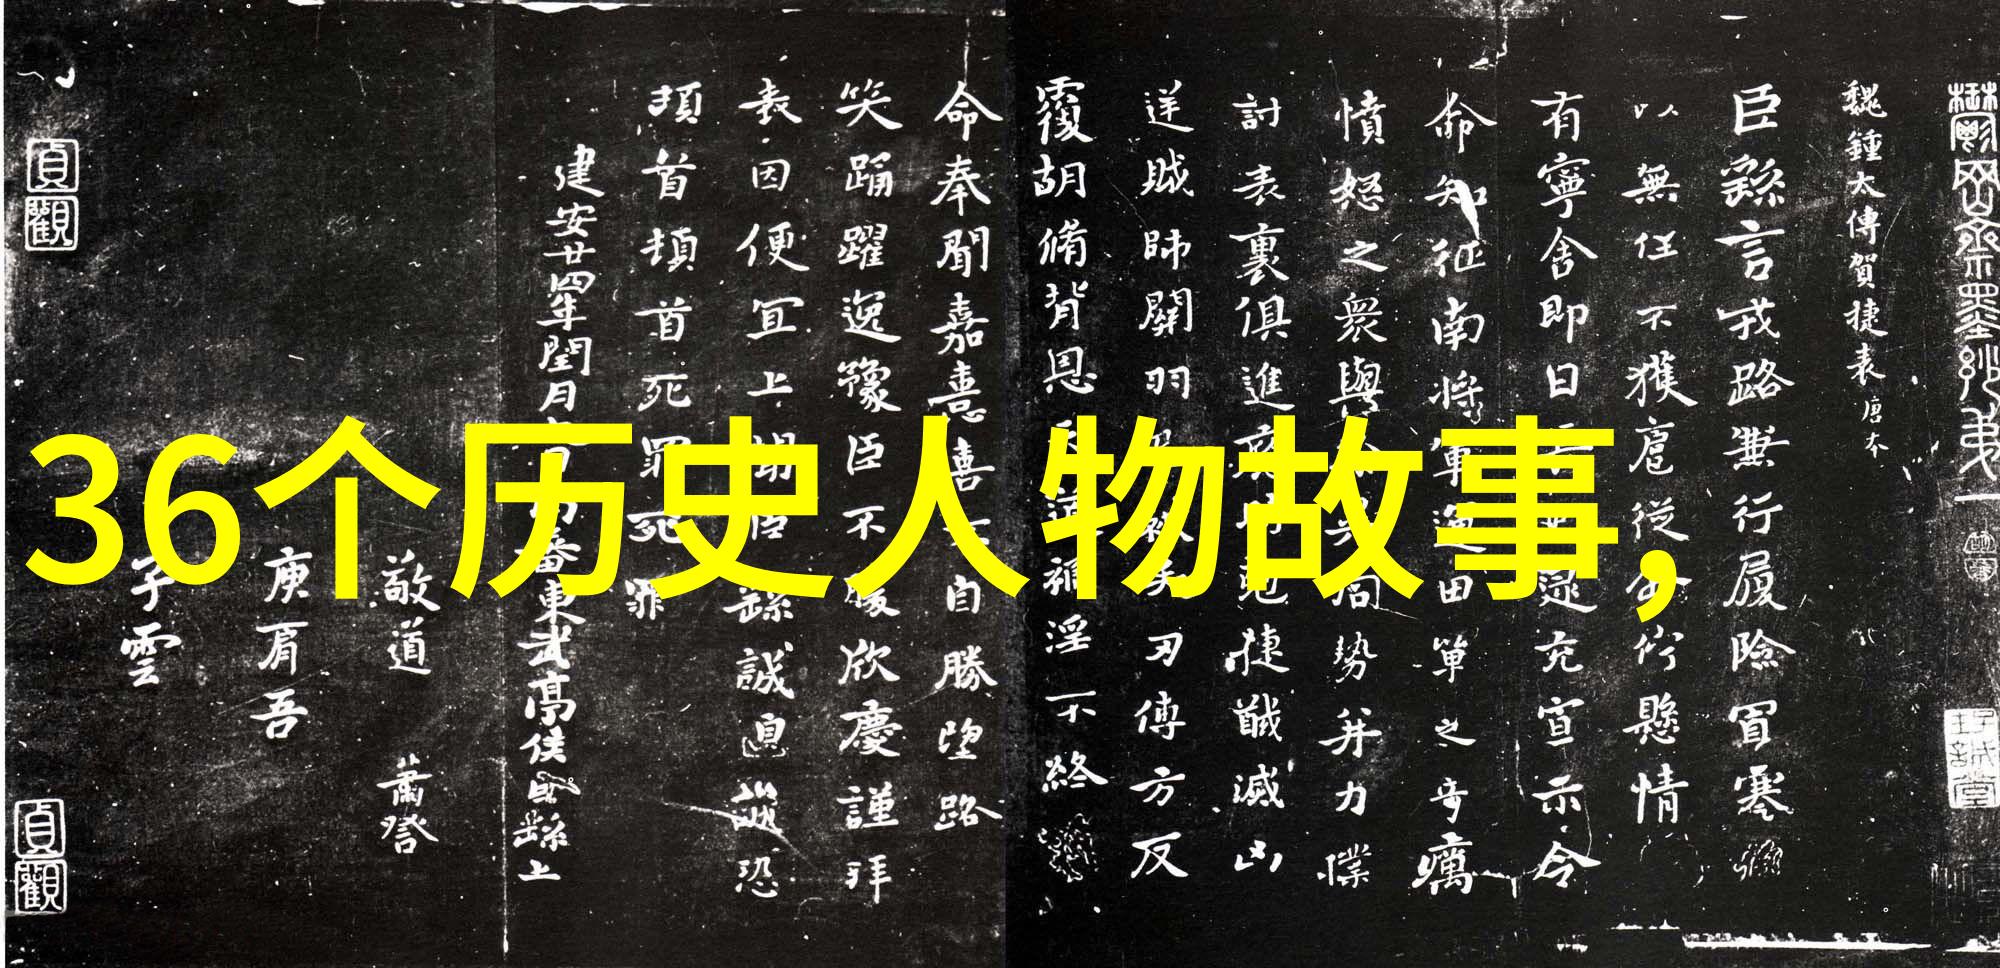 36个历史人物故事,
鬱岡齋墨妙第一
魏鍾太傅賀捷表 唐本
臣繇言戎路兼行履險冒寒
以無任不獲扈從企佇懸情
有寧舍即日充宣示令
命知征南將軍運田單之奇厲
憤怒之衆與同勢并力撲
討表裏俱進捷馘滅凶
逆賊帥關羽矢刃傅方反
覆胡脩背恩天道禍淫不終
命奉聞嘉憙喜自勝望路
笑踊躍逸豫臣不欣慶謹拜
表因便宜上聞臣繇誠惶誠恐
頓首頓首死罪死罪
建安廿四年閏月蕃東武亭侯臣繇上
敬道 蕭詧
庚肩吾
子雲
貞觀
貞觀